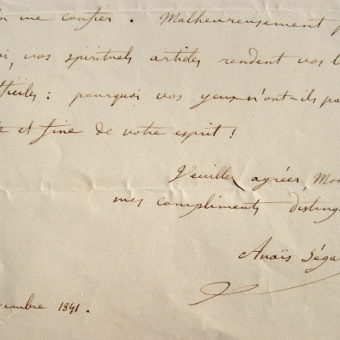 me confier. Malheureusement p
vos spirituels articles rendent vos l
pourquoi vos yeux n'ont-ils pa
et fine de votre esprit !
Veuillez agréer, Mon
mes compliments disting
Anaïs Ségа
embre 1841.